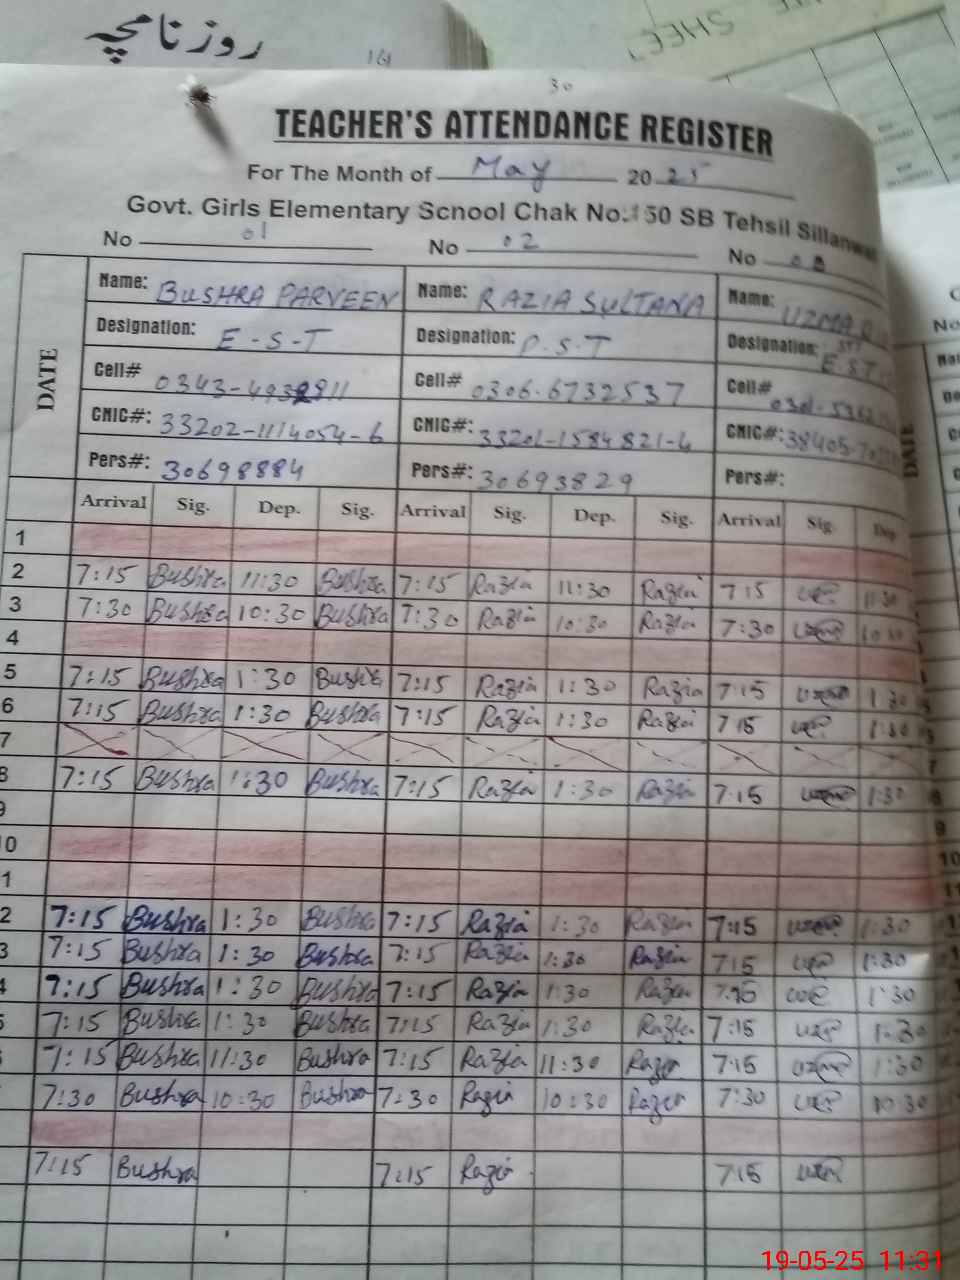 روزنامچہ
161
30
TEACHER'S ATTENDANCE REGISTER
For The Month of May 2025
Govt. Girls Elementary School Chak No. 150 SB Tehsil Sillanwali
No 01 No 02 No
DATE
Name: BUSHRA PARVEEN Name: RAZIA SULTANA Name: UZMA
Designation: E-S-T Designation: P.S.T Designation: E.S.T
Cell# Cell# 0306-6732537 Cell#
CNIC#: 33202-1114054-6 CNIC#: 33202-1584821-4 CNIC#:
Pers#: 30698884 Pers#: 30693829 Pers#:
Arrival Sig. Dep. Sig. Arrival Sig. Dep. Sig. Arrival Sig. Dep
1
2 7:15 Bushra 11:30 Bushra 7:15 Razia 11:30 Razia 7:15 11:30
3 7:30 Bushra 10:30 Bushra 7:30 Razia 10:30 Razia 7:30 10:30
4
5 7:15 Bushra 1:30 Bushra 7:15 Razia 1:30 Razia 7:15 1:30
6 7:15 Bushra 1:30 Bushra 7:15 Razia 1:30 Razia 7:15 1:30
7
8 7:15 Bushra 1:30 Bushra 7:15 Razia 1:30 Razia 7:15 1:30
9
0
1
2 7:15 Bushra 1:30 Bushra 7:15 Razia 1:30 Razia 7:15 1:30
3 7:15 Bushra 1:30 Bushra 7:15 Razia 1:30 Razia 7:15 1:30
4 7:15 Bushra 1:30 Bushra 7:15 Razia 1:30 Razia 7:15 1:30
5 7:15 Bushra 1:30 Bushra 7:15 Razia 1:30 Razia 7:15 1:30
7:15 Bushra 11:30 Bushra 7:15 Razia 11:30 Razia 7:15 1:30
7:30 Bushra 10:30 Bushra 7:30 Razia 10:30 Razia 7:30 10:30
7:15 Bushra 7:15 Razia 7:15
19-05-25 11:31